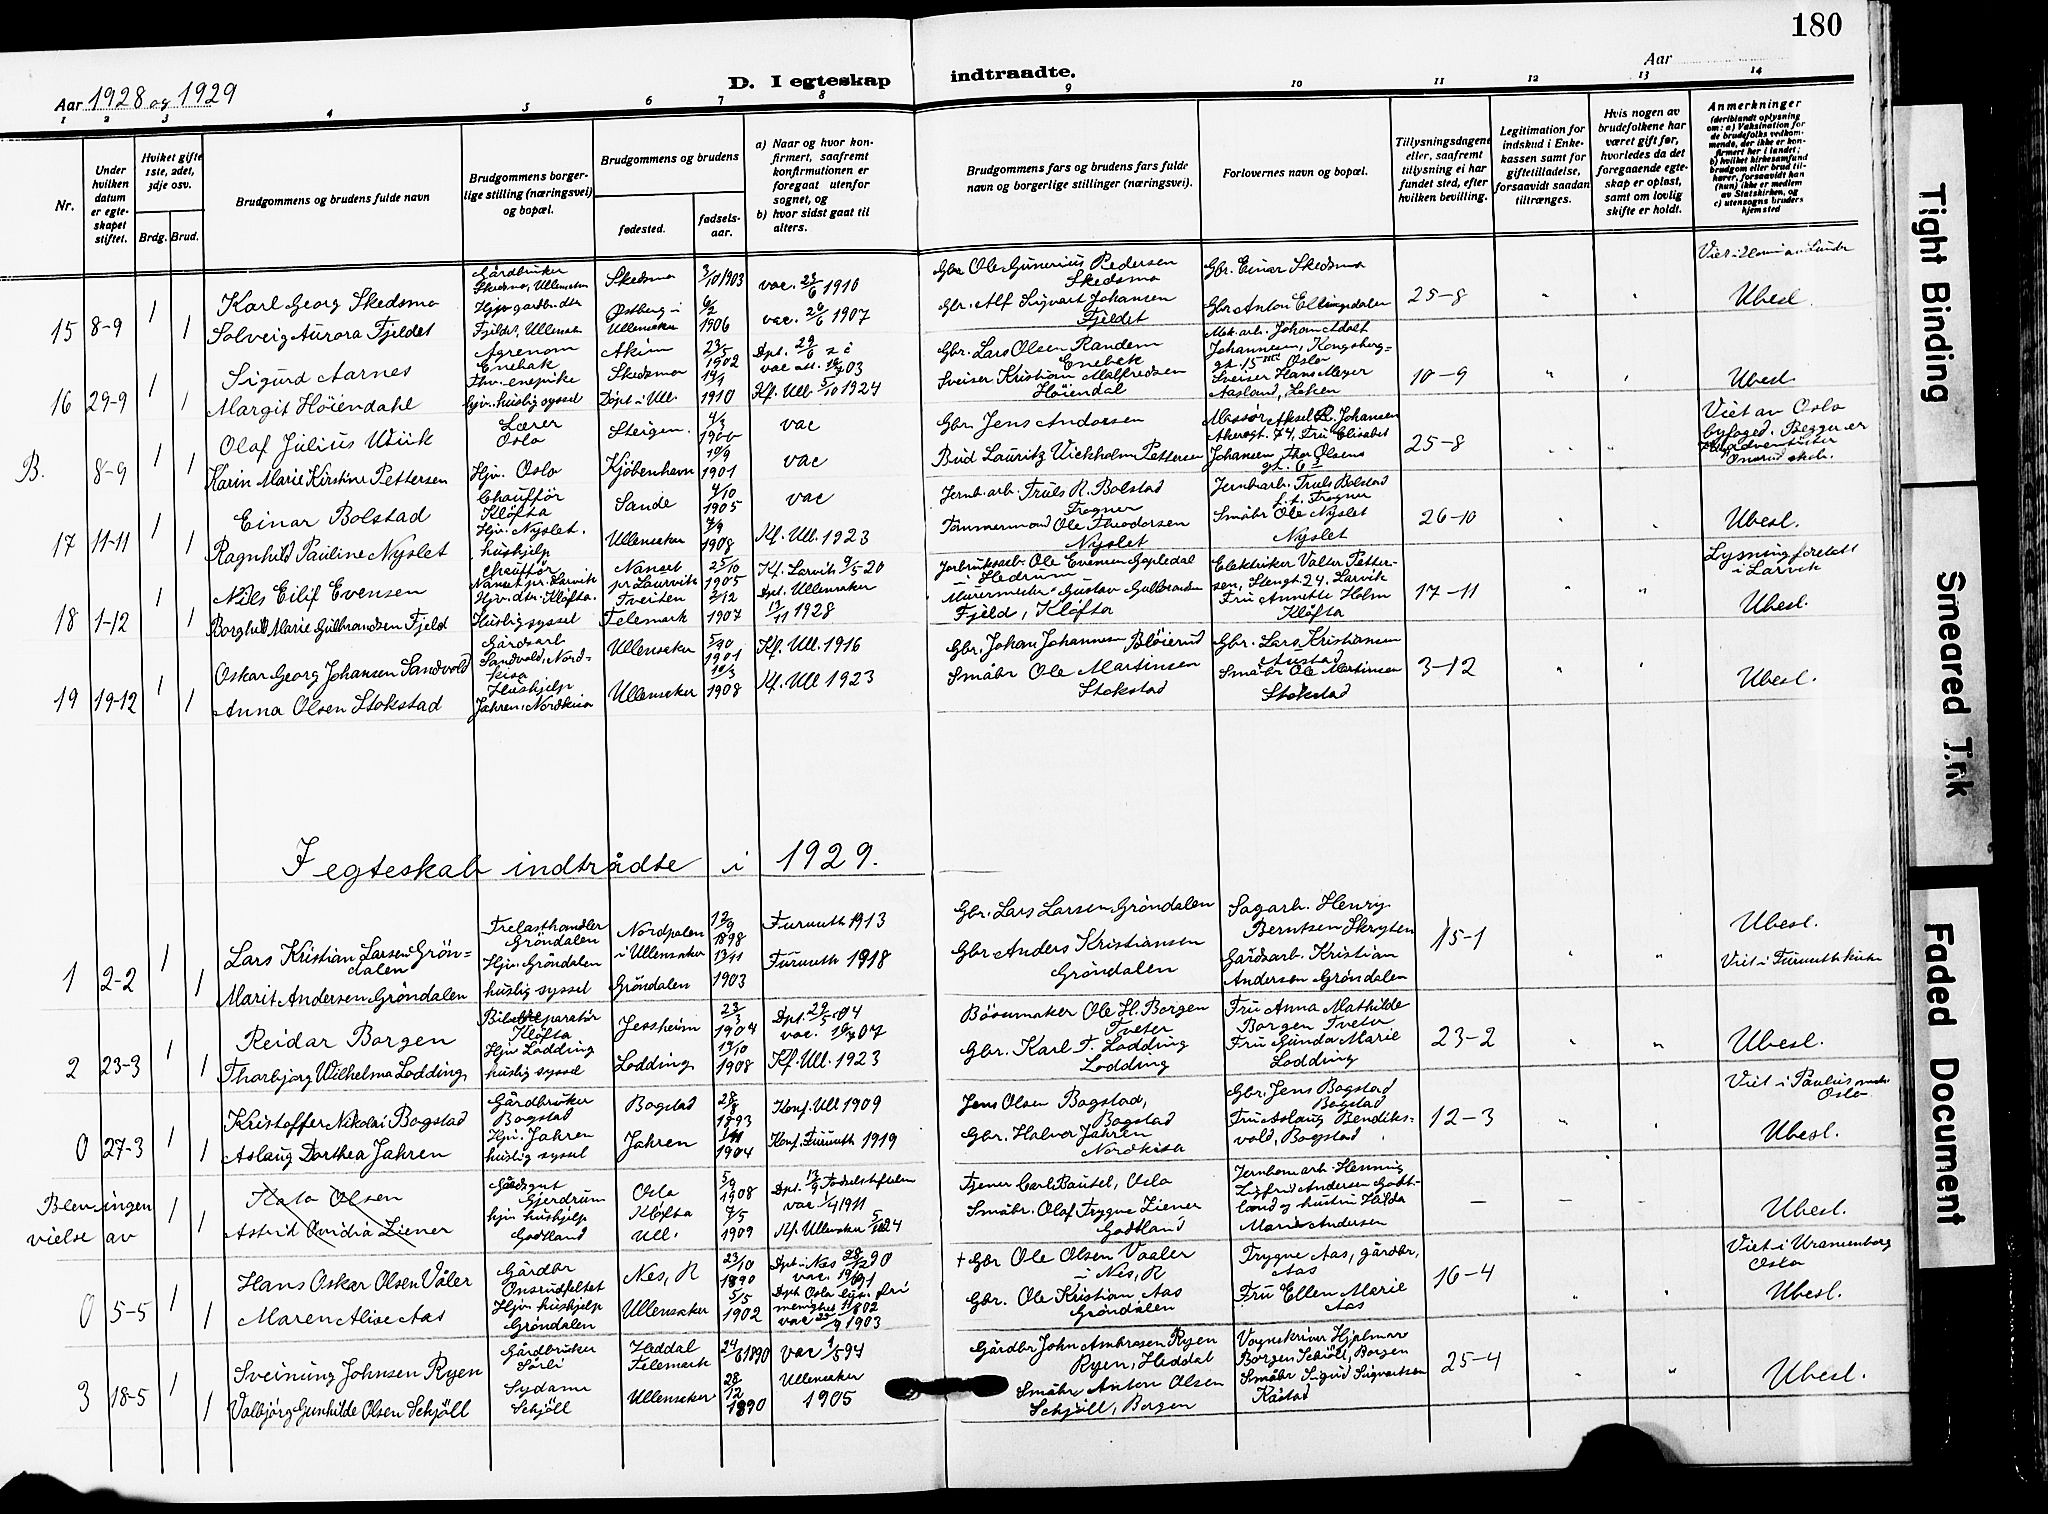 180
Aar 1928 og 1929
D. I egteskap indtraadte.
Aar
1 2 3 4 5 6 7 8 9 10 11 12 13 14
Nr.
Under hvilken datum er egteskapet stiftet.
Hvilket gifte 1ste, 2det, 3dje osv.
Brdg. Brud.
Brudgommens og brudens fulde navn
Brudgommens borgerlige stilling (næringsvei) og bopæl.
Brudgommens og brudens
fødested.
fødselsaar.
a) Naar og hvor konfirmert, saafremt konfirmationen er foregaat utenfor sognet, og
b) hvor sidst gaat til alters.
Brudgommens fars og brudens fars fulde navn og borgerlige stillinger (næringsvei).
Forlovernes navn og bopæl.
Tillysningsdagene eller, saafremt tillysning ei har fundet sted, efter hvilken bevilling.
Legitimation for indskud i Enkekassen samt for giftetilladelse, forsaavidt saadan tiltrænges.
Hvis nogen av brudefolkene har været gift før, hvorledes da det foregaaende egteskap er opløst, samt om lovlig skifte er holdt.
Anmerkninger (deriblandt oplysning om: a) Vaksination for de brudefolks vedkommende, der ikke er konfirmert her i landet; b) hvilket kirkesamfund brudgom eller brud tilhører, forsaavidt han (hun) ikke er medlem av Statskirken, og c) utensogns bruders hjemsted
15 8-9 1 Karl Georg Skedsmo Gårdbruker Skedsmo, Ullensaker Skedsmo 3/10 1903 vac. 23/6 1910 Gbr Ole Gunerius Pedersen Skedsmo Gbr. Einar Skedsmo 25-8 Ubesl.
1 Solveig Aurora Fjeldet Fjeldet, Ullensaker Østberg i Ullensaker 6/2 1906 vac. 26/6 1907 Gbr. Alf Sigvart Johansen Fjeldet Gbr Anton Ellingsdalen
16 29-9 1 Sigurd Aarnes Agronom Enebak 23/5 1902 Gbr. Lars Olsen Randem Enebak Johannesen, Kongsberggt. 15 Oslo 10-9 Ubesl.
1 Margit Höiendahl hjv. huslig syssel Skedsmo Döpt i Ull. 14/1 1910 Kf. Ull. 5/10 1924 Sveiser Kristian Malfredsen Höiendal Sveiser Hans Meyer Aasland, Løken
B. 8-9 1 Olaf Julius Wiik Lærer Oslo Steigen. 4/3 1900 vac Gbr. Jens Andersen Massör Aksel R. Johansen Akersgt. 74, Fru Elisabet Johansen, Thor Olsens gt. 6 25-8 Viet av Oslo byfoged. Begge er adventister
1 Karin Marie Kirstine Pettersen Hjv. Oslo Kjöbenhavn 10/9 1901 vac Bud Lauritz Vickholm Pettersen
17 11-11 1 Einar Bolstad Chauffør Klöfta Sande 4/10 1905 vac Jernb.arb. Truls R. Bolstad Frogner Jernb.arb. Truls Bolstad Frogner 26-10 Ubesl.
1 Ragnhild Pauline Nyslet Hjv. Nyslet. hushjelp Ullensaker 7/9 1908 Kf. Ull. 1923 Tömmermand Ole Theodorsen Nyslet Småbr Ole Nyslet Nyslet
18 1-12 1 Nils Eilif Evensen Chauffør Nanset pr. Larvik Nanset pr Laurvik 25/10 1905 Kf. Larvik 9/5-20 Ole Evensen Gapledal i Hedrum Elektriker Valter Pettersen, Stengt. 24. Larvik 17-11 Lysning foretatt i Larvik Ubesl.
1 Borghild Marie Gulbrandsen Fjeld Hjv. dtr. Klöfta. Huslig syssel Tveiten Telemark 2/12 1907 Dpt. Ullensaker 13/11 1928 Murermester Gustav Gulbrandsen Fjeld, Klöfta Fru Annette Holm Klöfta
19 19-12 1 Oskar Georg Johansen Sandvold Gårdsarb Sandvold, Nordkisa Ullensaker 5/10 1901 Kf. Ull. 1916 Gbr. Johan Johannesen Blöierud Gbr. Lars Kristiansen Austad 3-12 Ubesl.
1 Anna Olsen Stokstad Hushjelp Jahren, Nordkisa Ullensaker 10/3 1908 Kf. Ull 1923 Småbr Ole Martinsen Stokstad Småbr Ole Martinsen Stokstad
I egteskab indtrådte i 1929.
1 2-2 1 Lars Kristian Larsen Gröndalen Trelasthandler Gröndalen Nordpolen i Ullensaker 12/9 1898 Furuseth 1913 Gbr. Lars Larsen Gröndalen Sagarb. Henry Berntsen Skryten 15-1 Ubesl. Viet i Furuseth kirke
1 Marit Andersen Gröndalen Hjv. Gröndalen huslig syssel Gröndalen 13/11 1903 Furuseth 1918 Gbr Anders Kristiansen Gröndalen Gårdsarb. Kristian Andersen Gröndalen
2 23-3 1 Reidar Borgen Bilreparatör Klöfta Jessheim 23/3 1904 Dpt. 29/5-04 vac. Bösemaker Ole H. Borgen Tveter Fru Anna Mathilde Borgen Tveter 23-2 Ubesl.
1 Thorbjörg Wilhelma Lodding Hjv Lodding huslig syssel Lodding 19/10 1908 Kf. Ull. 1923 Gbr. Karl T. Lodding Lodding Fru Gunda Marie Lodding
0 27-3 1 Kristoffer Nikolai Bogstad Gårdbruker Bogstad Bogstad 28/8 1893 Konf. Ull 1909 Jens Olsen Bogstad, Bogstad Gbr. Jens Bogstad Bogstad 12-3 Viet i Paulus Oslo Ubesl.
1 Aslaug Dorthea Jahren Hjv. Jahren huslig syssel Jahren 1904 Konf. Furuseth 1919 Gbr. Halvor Jahren Nordkisa Fru Aslaug Bendiksvold, Bogstad
Blev ingen vielse av 1 Olsen Gjerdrum Oslo 5/9 1908 Dpt. 13/9 Födselsstiftelsen vac 1/4 1911 Tjener Carl Oslo Jernbanearb. Henning Zigfred Andersen Godtland og hustru Hilda Marie Andersen Ubesl.
1 Astrid Ovidia Ziener hjv hushjelp Godtland Klöfta Ull. 7/5 1909 Kf. Ullensaker Småbr. Olaf Trygve Ziener Godtland
0 5-5 1 Hans Oskar Olsen Våler Gårdbr Onsrudfeltet Nes, R 23/10 1890 Dpt i Nes 28/12 90 vac. † Gbr Ole Olsen Vaaler i Nes, R Trygve Aas, gårdbr, Aas 16-4 Viet i Uranienborg Oslo Ubesl.
1 Maren Alise Aas Hjv. hushjelp Gröndalen Ullensaker 5/5 1902 Dpt Oslo fri menighet 1902 vac 1903 Gbr. Ole Kristian Aas Gröndalen Fru Ellen Marie Aas
3 18-5 1 Sveinung Johnsen Ryen Gårdbruker Heddal Telemark 24/6 1890 vac 1/5 94 Gårdbr John Ambrosen Ryen Ryen, Heddal Vognskriver Hjalmar Borgen Schjöll, Borgen 25-4 Ubesl.
1 Valbjörg Gunhilde Olsen Schjöll Sydame Schjöll Ullensaker 28/12 1890 Ullensaker 1905 Småbr Anton Olsen Schjöll, Borgen Småbr Sigurd Sigvartsen Kåstad
Tight Binding
Smeared Ink
Faded Document